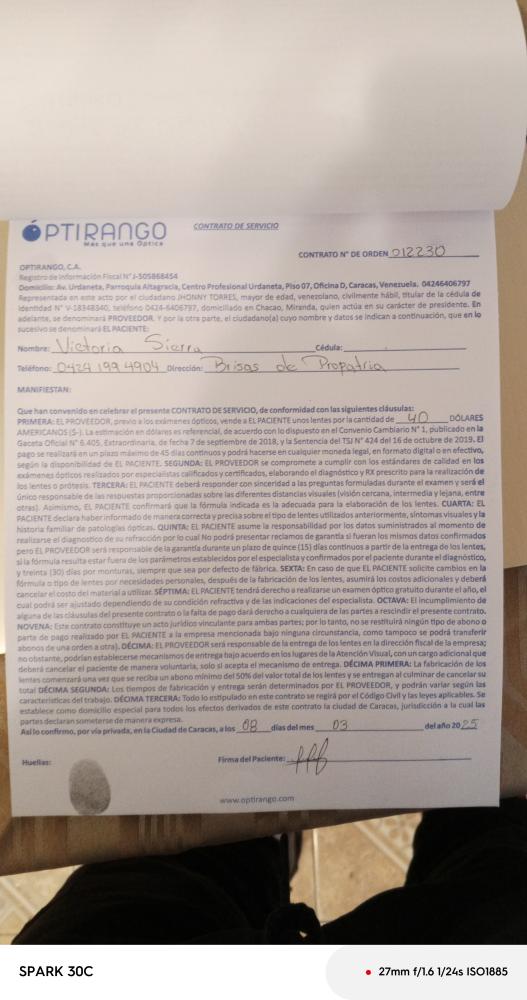 OPTIRANGO
Más que una Óptica
CONTRATO DE SERVICIO
CONTRATO N° DE ORDEN 012230
OPTIRANGO, C.A.
Registro de Información Fiscal N° J-505868454
Domicilio: Av. Urdaneta, Parroquia Altagracia, Centro Profesional Urdaneta, Piso 07, Oficina D, Caracas, Venezuela. 04246406797
Representada en este acto por el ciudadano JHONNY TORRES, mayor de edad, venezolano, civilmente hábil, titular de la cédula de
Identidad N° V-18348340, teléfono 0424-6406797, domiciliado en Chacao, Miranda, quien actúa en su carácter de presidente. En
adelante, se denominará PROVEEDOR. Y por la otra parte, el ciudadano(a) cuyo nombre y datos se indican a continuación, que en lo
sucesivo se denominará EL PACIENTE:
Nombre: Victoria Sierra Cédula:
Teléfono: 0424 199 4904 Dirección: Brisas de Propatria
MANIFIESTAN:
Que han convenido en celebrar el presente CONTRATO DE SERVICIO, de conformidad con las siguientes cláusulas:
PRIMERA: EL PROVEEDOR, previo a los exámenes ópticos, vende a EL PACIENTE unos lentes por la cantidad de 40 DÓLARES
AMERICANOS ($-). La estimación en dólares es referencial, de acuerdo con lo dispuesto en el Convenio Cambiario N° 1, publicado en la
Gaceta Oficial N° 6.405, Extraordinaria, de fecha 7 de septiembre de 2018, y la Sentencia del TSJ N° 424 del 16 de octubre de 2019. El
pago se realizará en un plazo máximo de 45 días continuos y podrá hacerse en cualquier moneda legal, en formato digital o en efectivo,
según la disponibilidad de EL PACIENTE. SEGUNDA: EL PROVEEDOR se compromete a cumplir con los estándares de calidad en los
exámenes ópticos realizados por especialistas calificados y certificados, elaborando el diagnóstico y RX prescrito para la realización de
los lentes o prótesis. TERCERA: EL PACIENTE deberá responder con sinceridad a las preguntas formuladas durante el examen y será el
único responsable de las respuestas proporcionadas sobre las diferentes distancias visuales (visión cercana, intermedia y lejana, entre
otras). Asimismo, EL PACIENTE confirmará que la fórmula indicada es la adecuada para la elaboración de los lentes. CUARTA: EL
PACIENTE declara haber informado de manera correcta y precisa sobre el tipo de lentes utilizados anteriormente, síntomas visuales y la
historia familiar de patologías ópticas. QUINTA: EL PACIENTE asume la responsabilidad por los datos suministrados al momento de
realizarse el diagnostico de su refracción por lo cual No podrá presentar reclamos de garantía si fueran los mismos datos confirmados
pero EL PROVEEDOR será responsable de la garantía durante un plazo de quince (15) días continuos a partir de la entrega de los lentes,
si la fórmula resulta estar fuera de los parámetros establecidos por el especialista y confirmados por el paciente durante el diagnóstico,
y treinta (30) días por monturas, siempre que sea por defecto de fábrica. SEXTA: En caso de que EL PACIENTE solicite cambios en la
fórmula o tipo de lentes por necesidades personales, después de la fabricación de los lentes, asumirá los costos adicionales y deberá
cancelar el costo del material a utilizar. SÉPTIMA: EL PACIENTE tendrá derecho a realizarse un examen óptico gratuito durante el año, el
cual podrá ser ajustado dependiendo de su condición refractiva y de las indicaciones del especialista. OCTAVA: El incumplimiento de
alguna de las cláusulas del presente contrato o la falta de pago dará derecho a cualquiera de las partes a rescindir el presente contrato.
NOVENA: Este contrato constituye un acto jurídico vinculante para ambas partes; por lo tanto, no se restituirá ningún tipo de abono o
parte de pago realizado por EL PACIENTE a la empresa mencionada bajo ninguna circunstancia, como tampoco se podrá transferir
abonos de una orden a otra). DÉCIMA: EL PROVEEDOR será responsable de la entrega de los lentes en la dirección fiscal de la empresa;
no obstante, podrían establecerse mecanismos de entrega bajo acuerdo en los lugares de la Atención Visual, con un cargo adicional que
deberá cancelar el paciente de manera voluntaria, solo si acepta el mecanismo de entrega. DÉCIMA PRIMERA: La fabricación de los
lentes comenzará una vez que se reciba un abono mínimo del 50% del valor total de los lentes y se entregan al culminar de cancelar su
total DÉCIMA SEGUNDA: Los tiempos de fabricación y entrega serán determinados por EL PROVEEDOR, y podrán variar según las
características del trabajo. DÉCIMA TERCERA: Todo lo estipulado en este contrato se regirá por el Código Civil y las leyes aplicables. Se
establece como domicilio especial para todos los efectos derivados de este contrato la ciudad de Caracas, jurisdicción a la cual las
partes declaran someterse de manera expresa.
Así lo confirmo, por vía privada, en la Ciudad de Caracas, a los 08 días del mes 03 del año 2025
Huellas:
Firma del Paciente:
www.optirango.com
SPARK 30C
27mm f/1.6 1/24s ISO1885